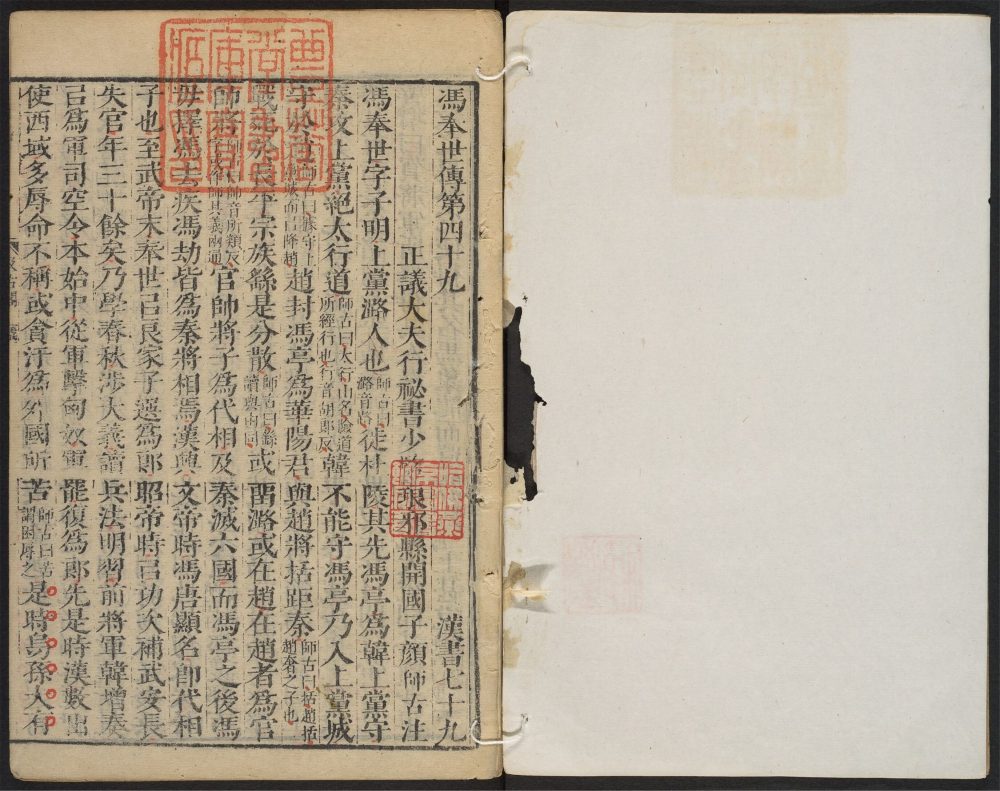 馮奉世傳第四十九 漢書七十九
正議大夫行祕書少 琅邪縣開國子顏師古注
馮奉世字子明上黨潞人也師古曰潞音路徙杜陵其先馮亭爲韓上黨守
秦攻上黨絕太行道師古曰太行山名險道所經行也行音胡郎反韓不能守馮亭乃入上黨城
守於趙師古曰據守上黨城而降趙趙封馮亭爲華陽君與趙將括距秦師古曰括趙括趙奢之子也
戰死於長平宗族繇是分散師古曰繇讀與由同或留潞或在趙在趙者爲官
師將師古曰帥音所類反字或作師其義兩通官帥將子爲代相及秦滅六國而馮亭之後馮
毋擇馮去疾馮劫皆爲秦將相焉漢興文帝時馮唐顯名卽代相
子也至武帝末奉世㠯良家子選爲郎昭帝時㠯功次補武安長
失官年三十餘矣乃學春秋涉大義讀兵法明習前將軍韓增奏
㠯爲軍司空令本始中從軍擊匈奴軍罷復爲郎先是時漢數出
使西域多辱命不稱或貪汙爲外國所苦師古曰苦謂困辱之是時烏孫大有